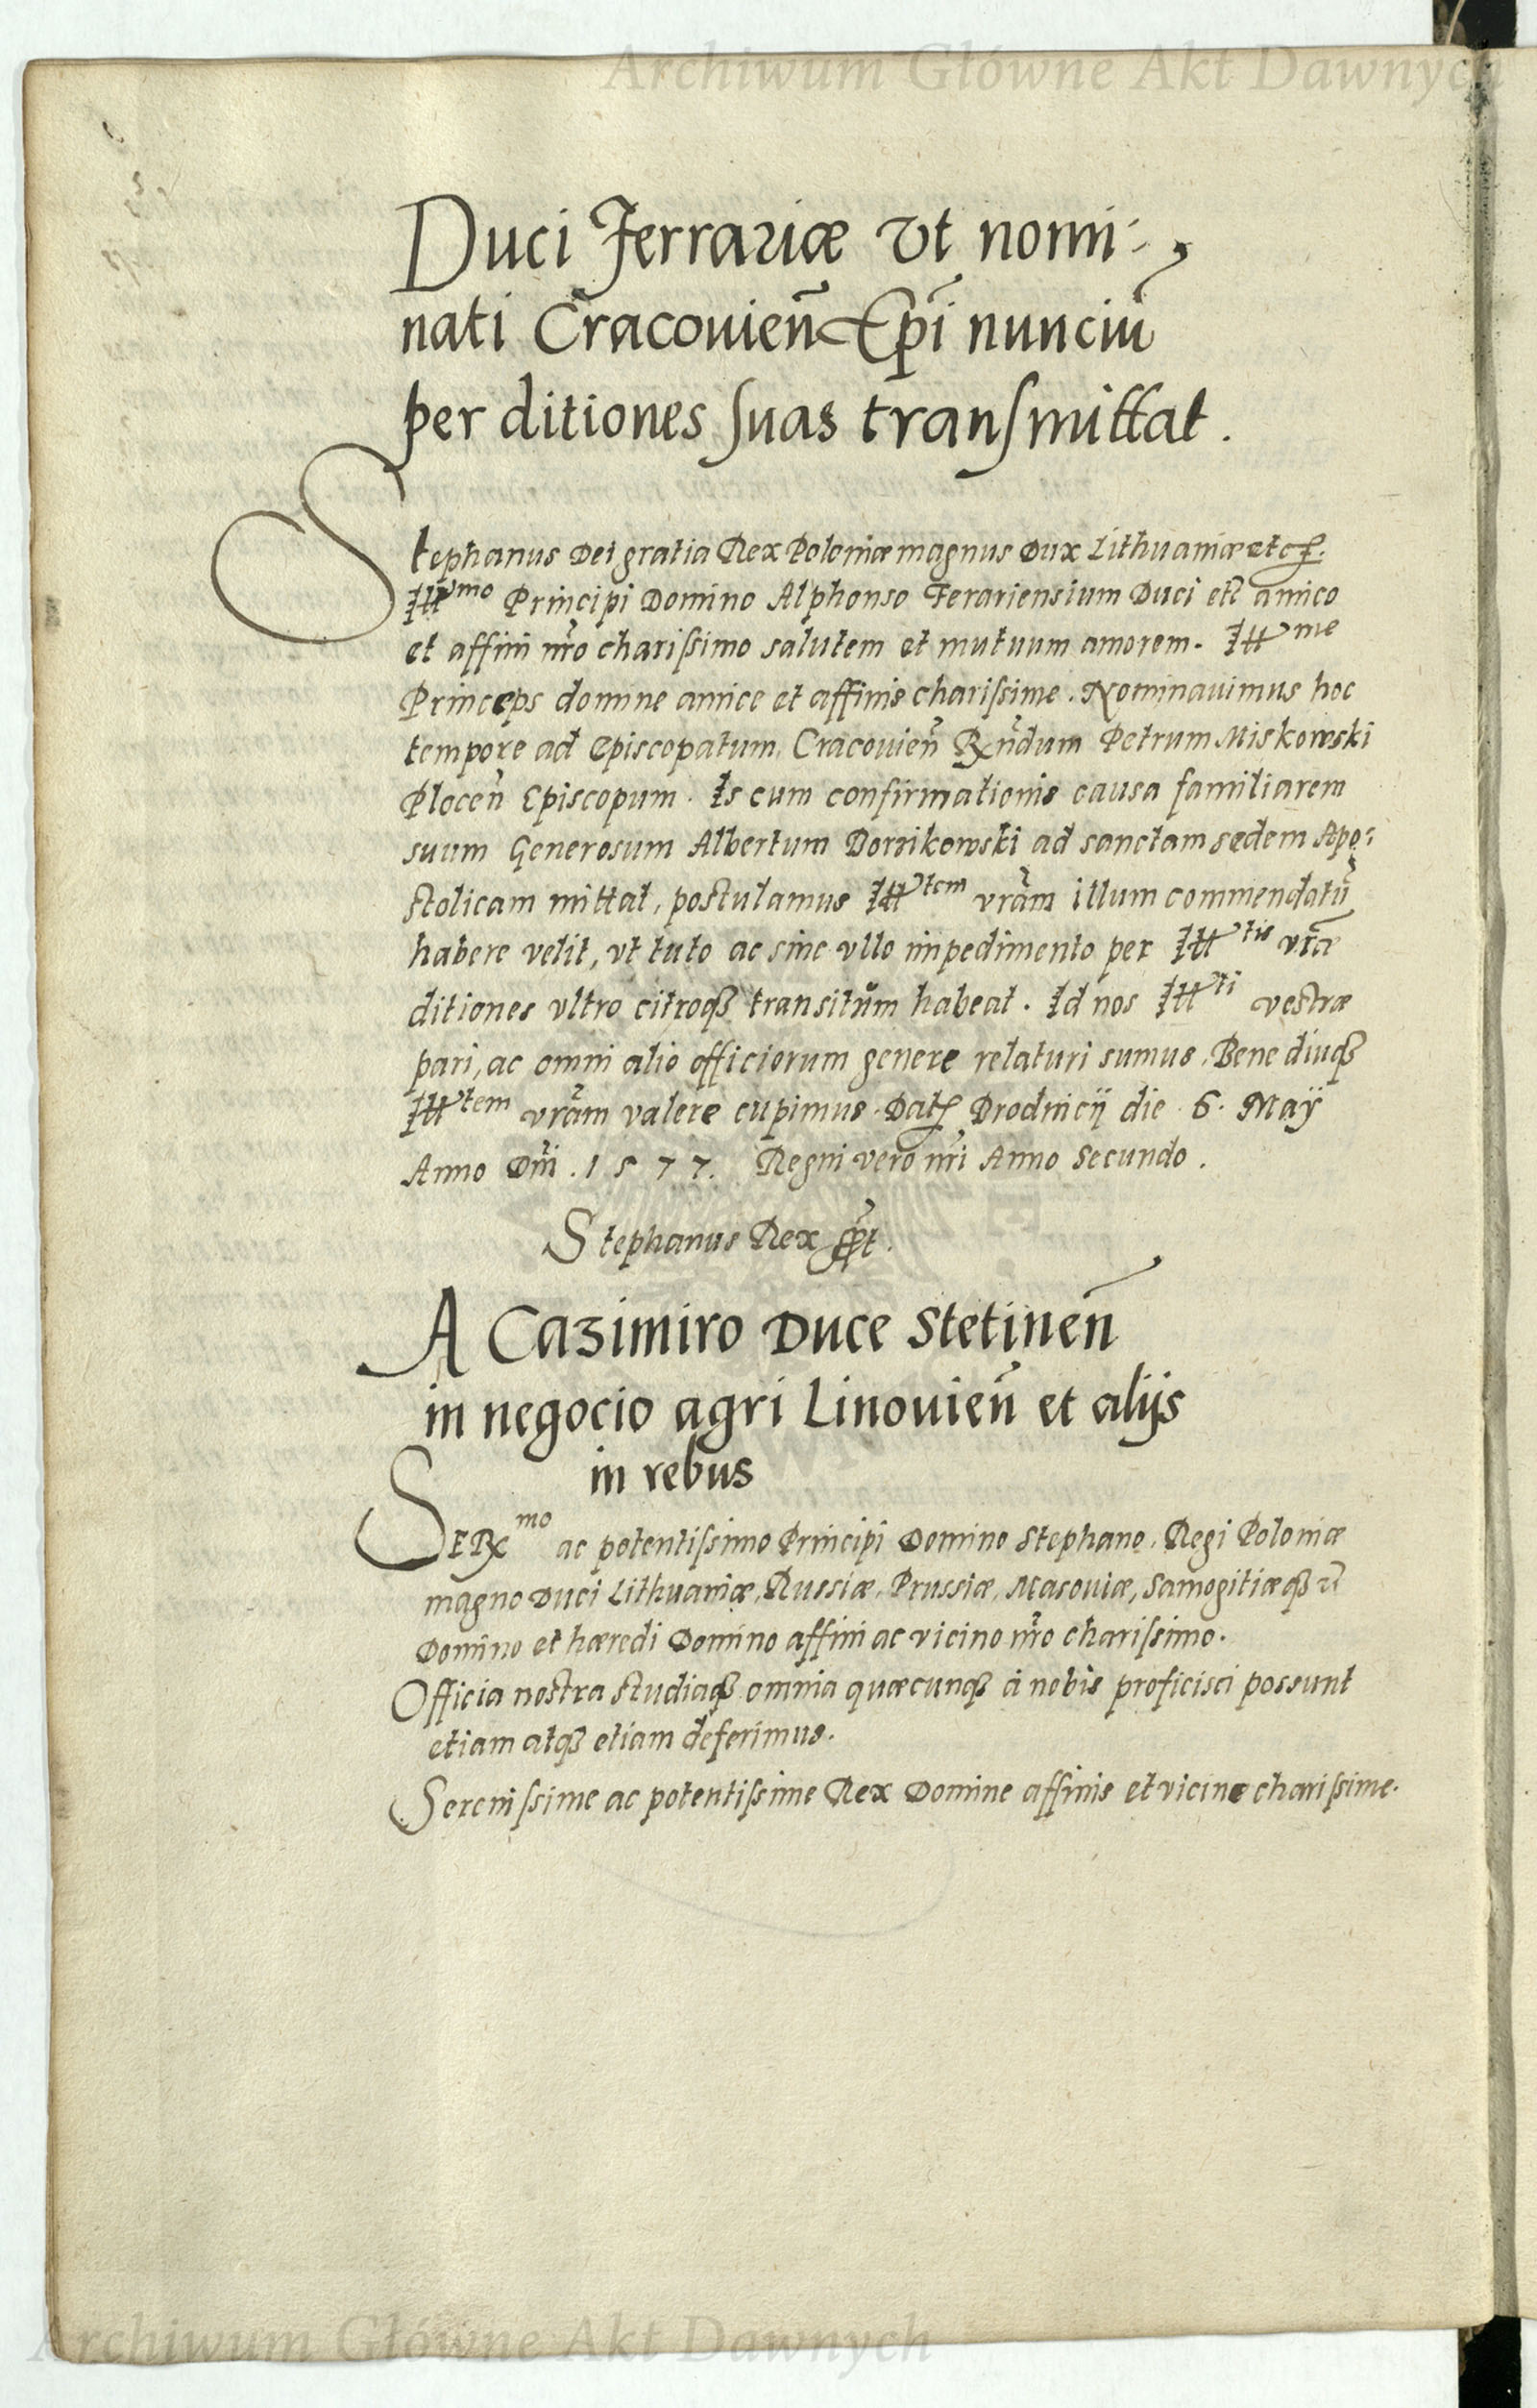 Archiwum Główne Akt Dawnych
Duci Ferrariæ Vt nomi-
nati Cracouieñ Ep̃i nunciũ
per ditiones suas transmittat.
Stephanus Dei gratia Rex Poloniæ magnus Dux Lithuaniæ etc.
Ill^mo Principi Domino Alphonso Ferariensium Duci etc̃ amico
et affini nr̃o charissimo salutem et mutuum amorem. Ill^me
Princeps domine amice et affinis charissime. Nominauimus hoc
tempore ad Episcopatum Cracouieñ Rñdum Petrum Miskowski
Ploceñ Episcopum. Is cum confirmationis causa familiarem
suum Generosum Albertum ad sanctam sedem Apo:
stolicam mittat, postulamus Ill^tem vrãm illum commendatũ
habere velit, vt tuto ac sine vllo impedimento per Ill^tis vrãe
ditiones vltro citroq3 transitům habeat. Id nos Ill^ti vestræ
pari, ac omni alio officiorum genere relaturi sumus. Bene diuq3
Ill^tem vrãm valere cupimus. Dat. die 6. Maÿ
Anno Dñi. 1577. Regni vero nr̃i Anno Secundo.
Stephanus Rex
A Cazimiro Duce Stetineñ
in negocio agri Linouieñ et alijs
in rebus
Ser^mo ac potentissimo Principi Domino Stephano, Regi Poloniæ
magno Duci Lithuaniæ, Russiæ, Prussiæ, Masouiæ, Samogitiæq3 etc̃
Domino et hæredi Domino affini ac vicino nr̃o charissimo.
Officia nostra studiaq3 omnia quæcunq3 à nobis proficisci possunt
etiam atq3 etiam deferimus.
Serenissime ac potentissime Rex Domine affinis et vicine charissime.
Archiwum Główne Akt Dawnych